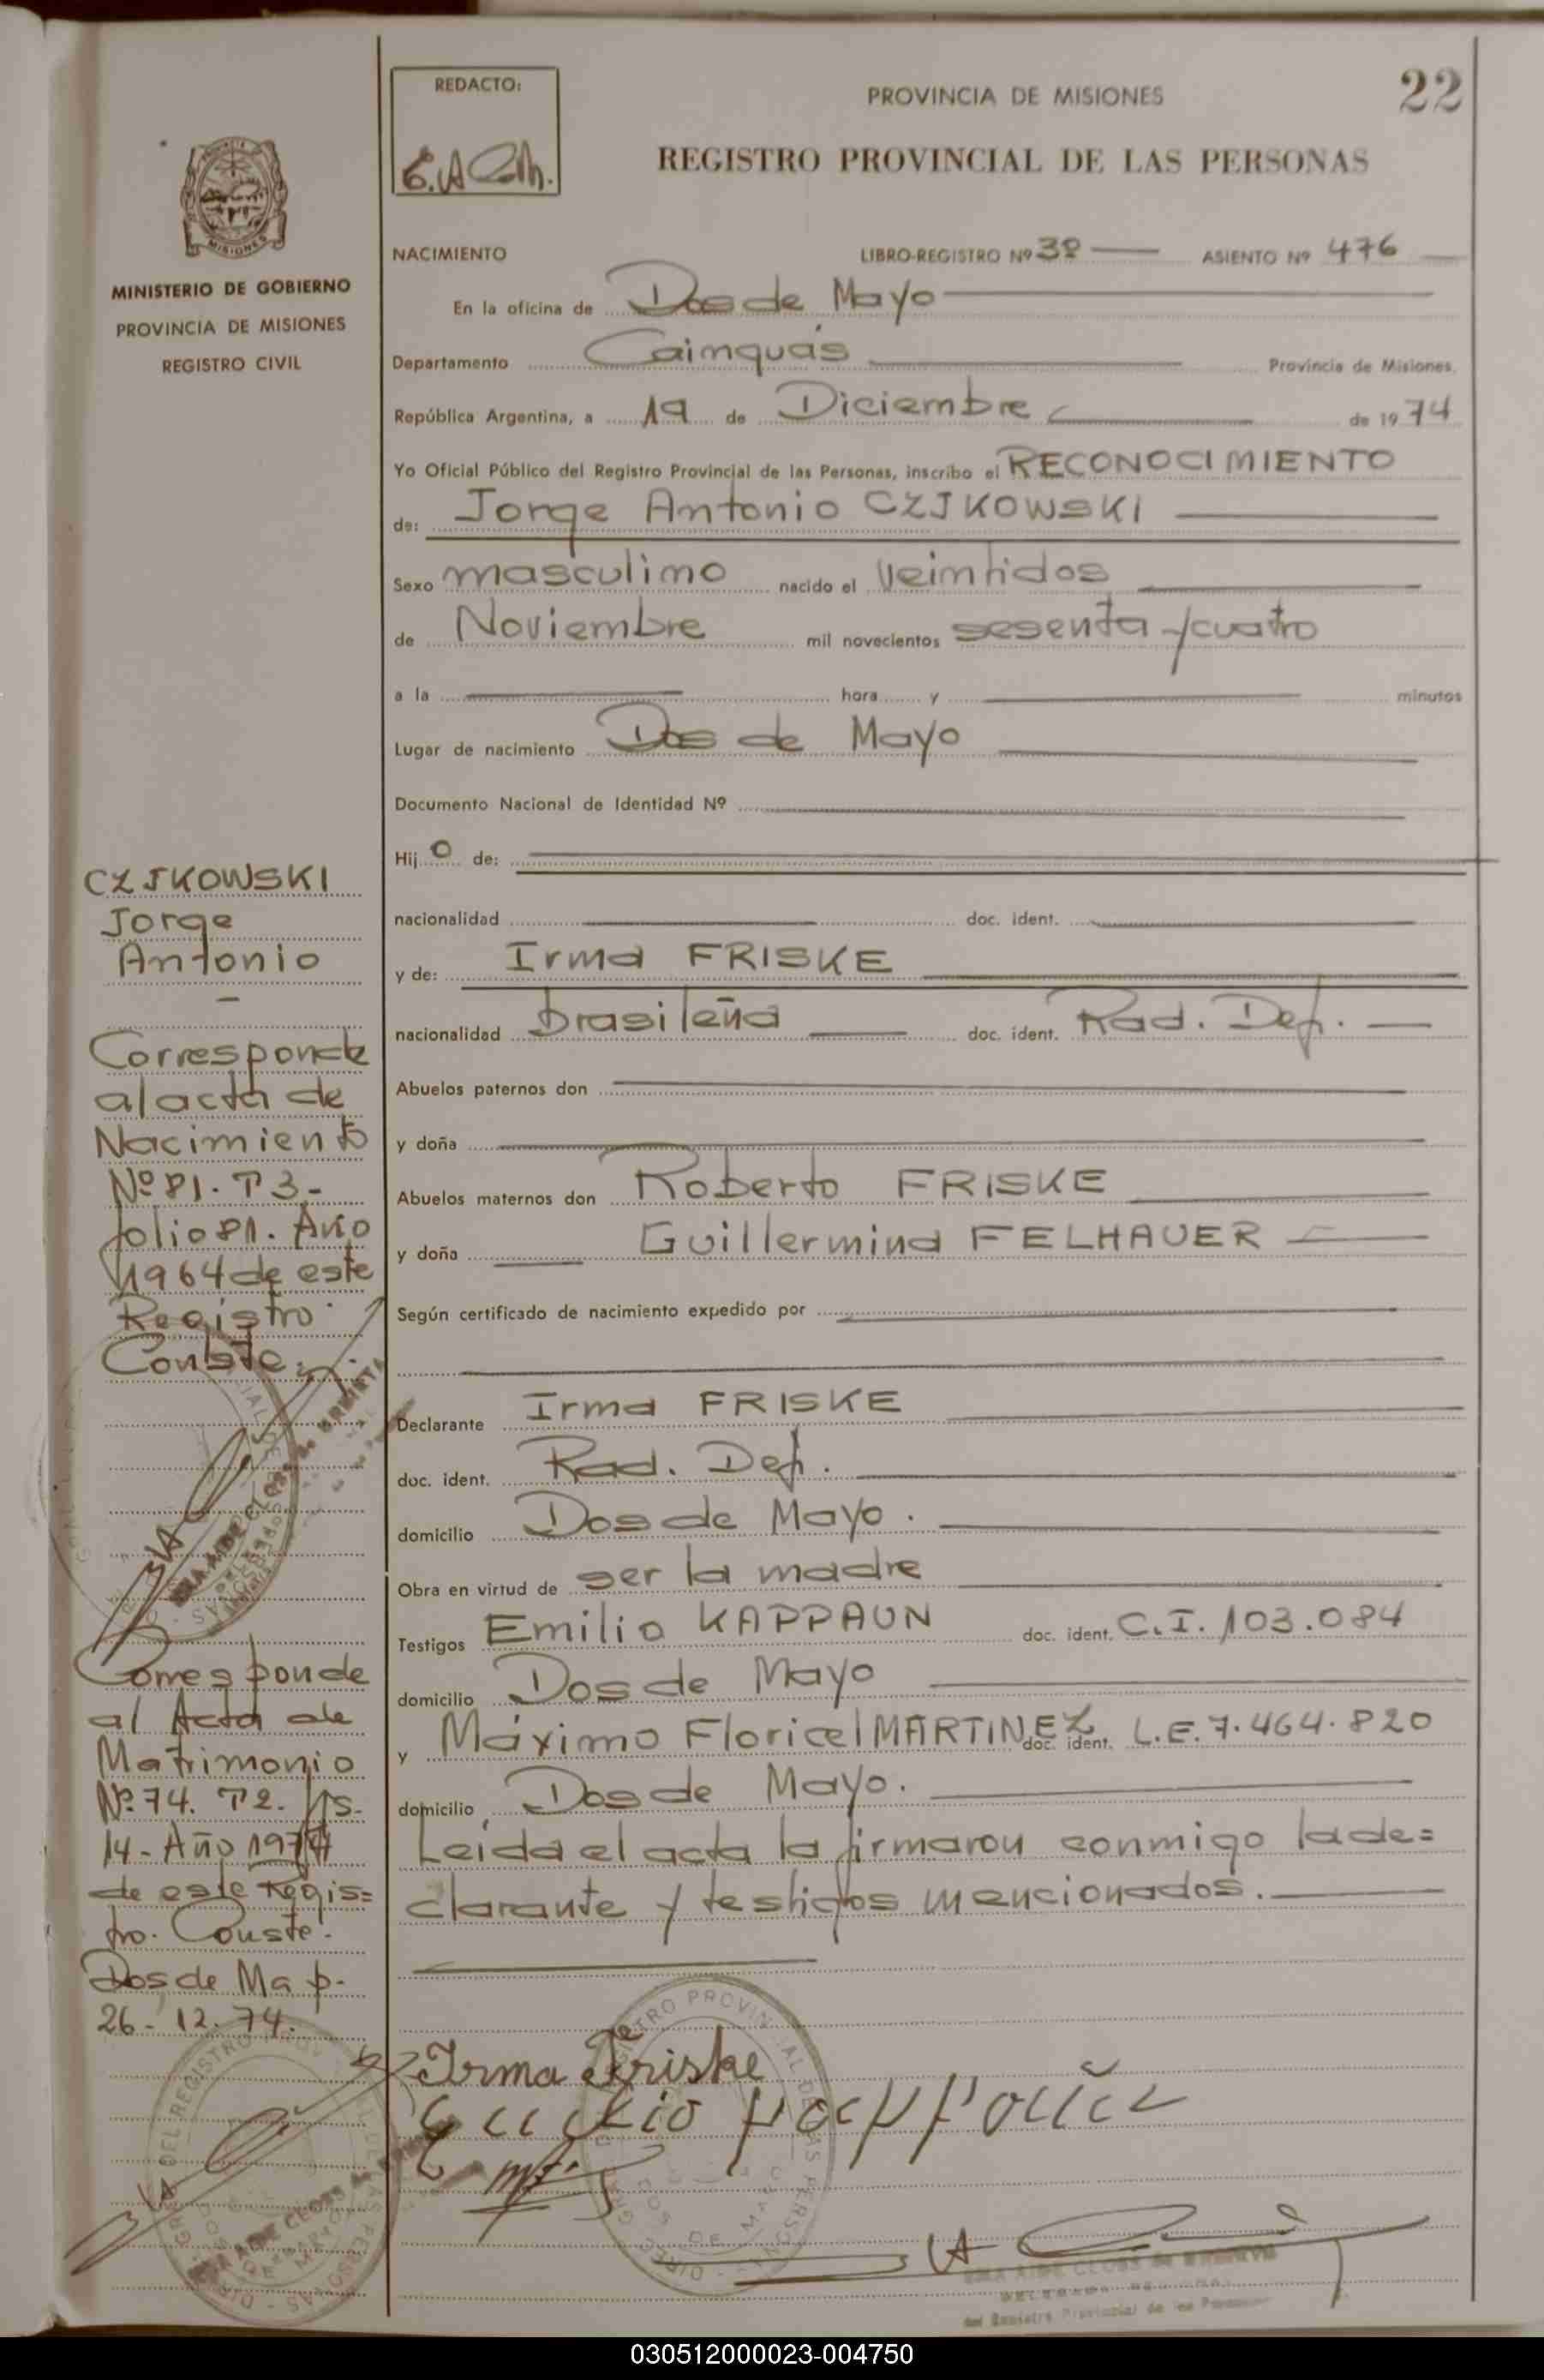 22
REDACTO:
PROVINCIA DE MISIONES
REGISTRO PROVINCIAL DE LAS PERSONAS
MISIONES
MINISTERIO DE GOBIERNO
PROVINCIA DE MISIONES
REGISTRO CIVIL
NACIMIENTO LIBRO-REGISTRO Nº 3º ASIENTO Nº 476
En la oficina de Dos de Mayo
Departamento Cainquás Provincia de Misiones.
República Argentina, a 19 de Diciembre de 1974
Yo Oficial Público del Registro Provincial de las Personas, inscribo el RECONOCIMIENTO
de: Jorge Antonio CZJKOWSKI
Sexo masculino nacido el Veintidos
de Noviembre mil novecientos sesenta y cuatro
a la hora y minutos
Lugar de nacimiento Dos de Mayo
Documento Nacional de Identidad Nº
Hijo de:
nacionalidad doc. ident.
y de: Irma FRISKE
nacionalidad brasileña doc. ident. Rad. Def.
Abuelos paternos don
y doña
Abuelos maternos don Roberto FRISKE
y doña Guillermina FELHAUER
Según certificado de nacimiento expedido por
Declarante Irma FRISKE
doc. ident. Rad. Def.
domicilio Dos de Mayo.
Obra en virtud de ser la madre
Testigos Emilio KAPPAUN doc. ident. C.I. 103.084
domicilio Dos de Mayo
y Máximo Floricel MARTINEZ doc. ident. L.E. 7.464.820
domicilio Dos de Mayo.
Leída el acta la firmaron conmigo la de=
clarante y testigos mencionados.
Irma Friske
CZJKOWSKI
Jorge
Antonio
Corresponde
al acta de
Nacimiento
Nº 81. T 3-
folio 81. Año
1964 de este
Registro
Conste.
Corresponde
al Acta de
Matrimonio
Nº 74. T 2.
14- Año 1974
de este Regis=
tro. Conste.
Dos de Mayo.
26-12-74.
del Registro Provincial de las Personas
030512000023-004750